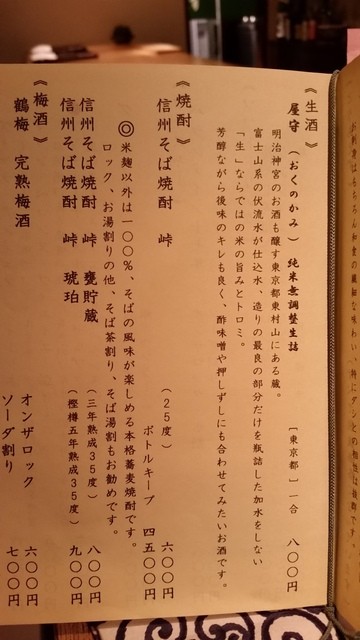 《生酒》
屋守（おくのかみ）　純米無調整生詰　［東京都］一合　八〇〇円
明治神宮のお酒も醸す東京都東村山にある蔵。
富士山系の伏流水が仕込水、造りの最良の部分だけを瓶詰した加水をしない
「生」ならではの米の旨みとトロミ。
芳醇ながら後味のキレも良く、酢味噌や押しずしにも合わせてみたいお酒です。
《焼酎》
信州そば焼酎　峠　（25度）　六〇〇円
ボトルキープ　四五〇〇円
◎米麹以外は一〇〇％、そばの風味が楽しめる本格蕎麦焼酎です。
ロック、お湯割りの他、そば茶割り、そば湯割もお勧めです。
信州そば焼酎　峠　甕貯蔵　（三年熟成35度）　八〇〇円
信州そば焼酎　峠　琥珀　（樫樽五年熟成35度）　九〇〇円
《梅酒》
鶴梅　完熟梅酒　オンザロック　六〇〇円
ソーダ割り　七〇〇円